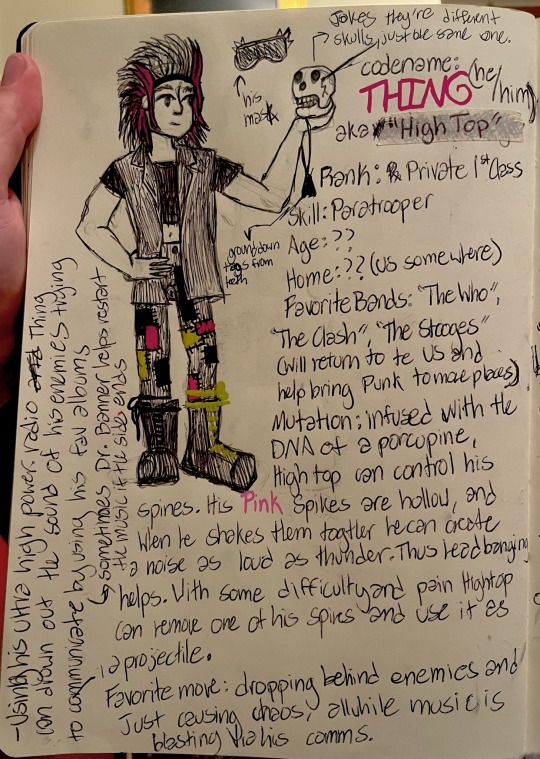 Jokes they're different
skulls, just the same one.
his
mask
codename: (he/him)
THING
aka "High Top"
Rank: Private 1st Class
Skill: Paratrooper
Age: ??
Home: ?? (US somewhere)
Favorite Bands: "The Who",
"The Clash", "The Stooges"
(will return to te US and
help bring Punk to more places)
Mutation: infused with the
DNA of a porcupine,
High top can control his
spines. His Pink Spikes are hollow, and
when he shakes them togther he can create
a noise as loud as thunder. Thus headbanging
helps. With some difficulty and pain Hightop
can remove one of his spires and use it as
a projectile.
Favorite move: dropping behind enemies and
Just causing chaos, all while music is
blasting via his comms.
ground down
tags from
teeth
-Using his ultra high power radio Thing
can drown out the sound of his enemies trying
to communicate by using his fav albums
sometimes Dr. Banner helps restart
the music if the side ends